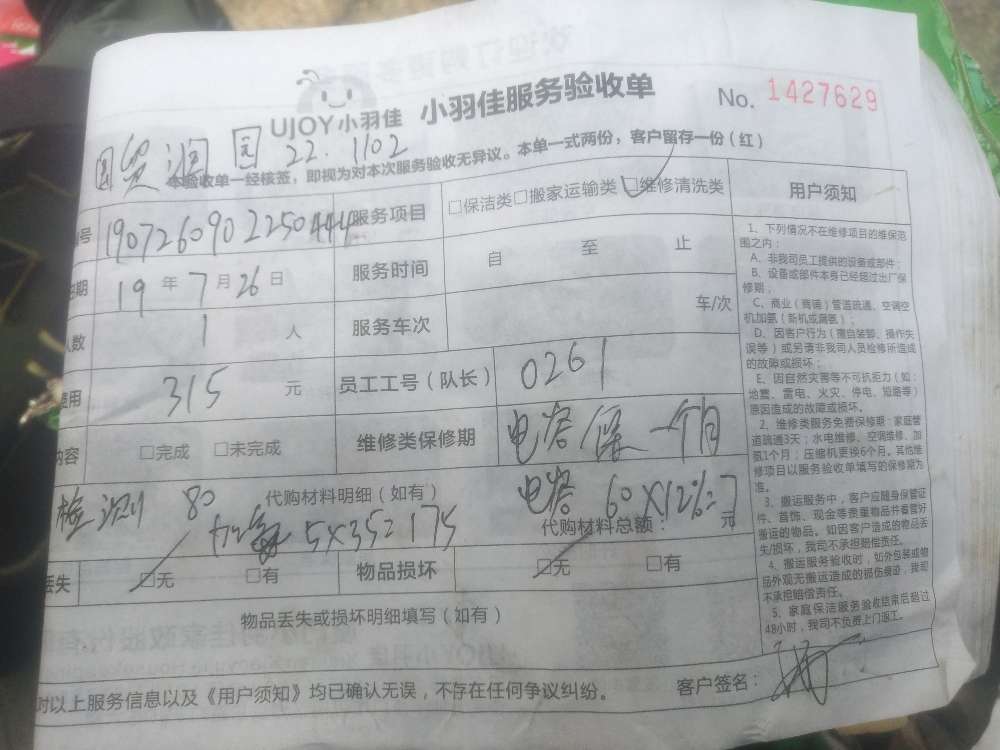 UJOY小羽佳 小羽佳服务验收单 No. 1427629
国贸润园 22.1102
本验收单一经核签，即视为对本次服务验收无异议。本单一式两份，客户留存一份（红）
号 190726090225044 服务项目 □保洁类 □搬家运输类 □维修清洗类 用户须知
期 19 年 7 月 26 日 服务时间 自 至 止
人数 1 人 服务车次 车/次
费用 315 元 员工工号（队长） 0261
内容 □完成 □未完成 维修类保修期 电容保一个月
检测 80 代购材料明细（如有） 电容 60×12%=7
加氟 5×35=175 代购材料总额： 元
丢失 □无 □有 物品损坏 □无 □有
物品丢失或损坏明细填写（如有）
对以上服务信息以及《用户须知》均已确认无误，不存在任何争议纠纷。 客户签名：
1、下列情况不在维修项目的维保范
围之内：
A、非我司员工提供的设备或部件；
B、设备或部件本身已经超过出厂保
修期；
C、商业（商铺）管道疏通、空调空
机加氨（新机或漏氨）；
D、因客户行为（擅自装卸、操作失
误等）或另请非我司人员检修所造成
的故障或损坏；
E、因自然灾害等不可抗拒力（如：
地震、雷电、火灾、停电、短路等）
原因造成的故障或损坏。
2、维修类服务免费保修期：家庭管
道疏通3天；水电维修、空调维修、加
氨1个月；压缩机更换6个月。其他维
修项目以服务验收单填写的保修期为
准。
3、搬运服务中，客户应随身保管证
件、首饰、现金等贵重物品并看管好
搬运的物品。如因客户造成的物品丢
失/损坏，我司不承担赔偿责任。
4、搬运服务验收时，如外包装或物
品外观无搬运造成的损伤痕迹，我司
不承担赔偿责任。
5、家庭保洁服务验收结束后超过
48小时，我司不负责上门返工。